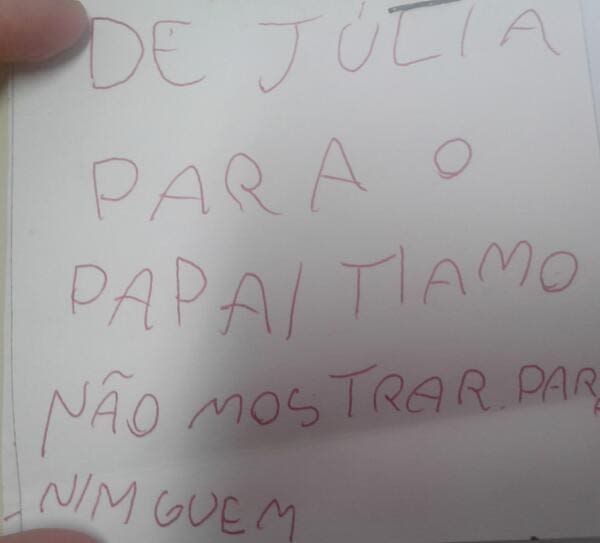 DE JÚLIA
PARA O
PAPAI TIAMO
NÃO MOSTRAR PARA
NIMGUEM